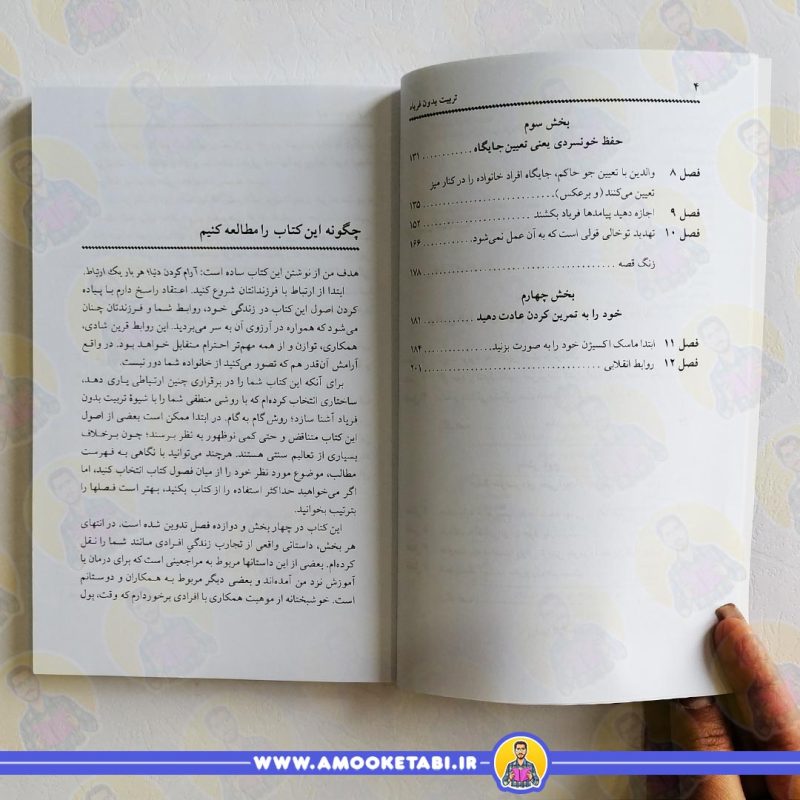 ۴
تربیت بدون فریاد
بخش سوم
حفظ خونسردی یعنی تعیین جایگاه . . . . . . . . . . . ۱۳۱
فصل ۸ والدین با تعیین جو حاکم، جایگاه افراد خانواده را در کنار میز
تعیین می‌کنند (و برعکس) . . . . . . . . . . . ۱۳۵
فصل ۹ اجازه دهید پیامدها فریاد بکشند . . . . . . . . . . . ۱۵۲
فصل ۱۰ تهدید توخالی قولی است که به آن عمل نمی‌شود . . . . . . . . . . . ۱۶۶
زنگ قصه . . . . . . . . . . . ۱۷۸
بخش چهارم
خود را به تمرین کردن عادت دهید . . . . . . . . . . . ۱۸۱
فصل ۱۱ ابتدا ماسک اکسیژن خود را به صورت بزنید . . . . . . . . . . . ۱۸۴
فصل ۱۲ روابط انقلابی . . . . . . . . . . . ۲۰۱
چگونه این کتاب را مطالعه کنیم
هدف من از نوشتن این کتاب ساده است: آرام کردن دنیا؛ هر بار یک ارتباط.
ابتدا از ارتباط با فرزندانتان شروع کنید. اعتقاد راسخ دارم با پیاده
کردن اصول این کتاب در زندگی خود، روابط شما و فرزندتان چنان
می‌شود که همواره در آرزوی آن به سر می‌بردید. این روابط قرین شادی،
همکاری، توازن و از همه مهم‌تر احترام متقابل خواهد بود. در واقع
آرامش آن‌قدر هم که تصور می‌کنید از خانواده شما دور نیست.
برای آنکه این کتاب شما را در برقراری چنین ارتباطی یاری دهد،
ساختاری انتخاب کرده‌ام که با روشی منطقی شما را با شیوۀ تربیت بدون
فریاد آشنا سازد؛ روش گام به گام. در ابتدا ممکن است بعضی از اصول
این کتاب متناقض و حتی کمی نوظهور به نظر برسند؛ چون برخلاف
بسیاری از تعالیم سنتی هستند. هرچند می‌توانید با نگاهی به فهرست
مطالب، موضوع مورد نظر خود را از میان فصول کتاب انتخاب کنید، اما
اگر می‌خواهید حداکثر استفاده را از کتاب بکنید، بهتر است فصلها را
بترتیب بخوانید.
این کتاب در چهار بخش و دوازده فصل تدوین شده است. در انتهای
هر بخش، داستانی واقعی از تجارب زندگیِ افرادی مانند شما را نقل
کرده‌ام. بعضی از این داستانها مربوط به مراجعینی است که برای درمان یا
آموزش نزد من آمده‌اند و بعضی دیگر مربوط به همکاران و دوستانم
است. خوشبختانه از موهبت همکاری با افرادی برخوردارم که وقت، پول
WWW.AMOOKETABI.IR